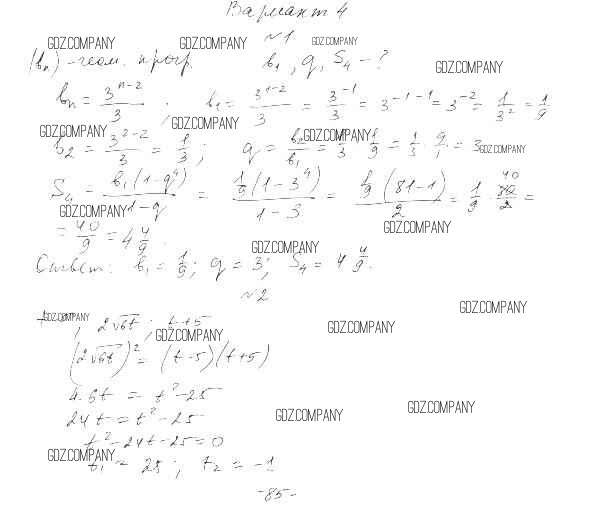 Вариант 4
GDZ.COMPANY GDZ.COMPANY №1 GDZ.COMPANY
(bn) - геом. прогр. b1, q, S4 - ?
GDZ.COMPANY
bn = 3^(n-2)/3. b1 = 3^(1-2)/3 = 3^(-1)/3 = 3^(-1-1) = 3^(-2) = 1/3^2 = 1/9
GDZ.COMPANY GDZ.COMPANY GDZ.COMPANY
b2 = 3^(2-2)/3 = 1/3; q = b2/b1 = 1/3 : 1/9 = 1/3 · 9/1 = 3
GDZ.COMPANY
S4 = b1(1-q^4)/(1-q) = 1/9(1-3^4)/(1-3) = 1/9(81-1)/2 = 1/9 · 80/2 40 =
GDZ.COMPANY GDZ.COMPANY
= 40/9 = 4 4/9.
GDZ.COMPANY
Ответ: b1 = 1/9; q = 3; S4 = 4 4/9.
№2
GDZ.COMPANY GDZ.COMPANY
; 2√6t; t+5
GDZ.COMPANY GDZ.COMPANY
(2√6t)^2 = (t-5)(t+5)
4·6t = t^2-25
GDZ.COMPANY
24t = t^2-25
GDZ.COMPANY
t^2-24t-25=0
GDZ.COMPANY
t1 = 25; t2 = -1
-85-